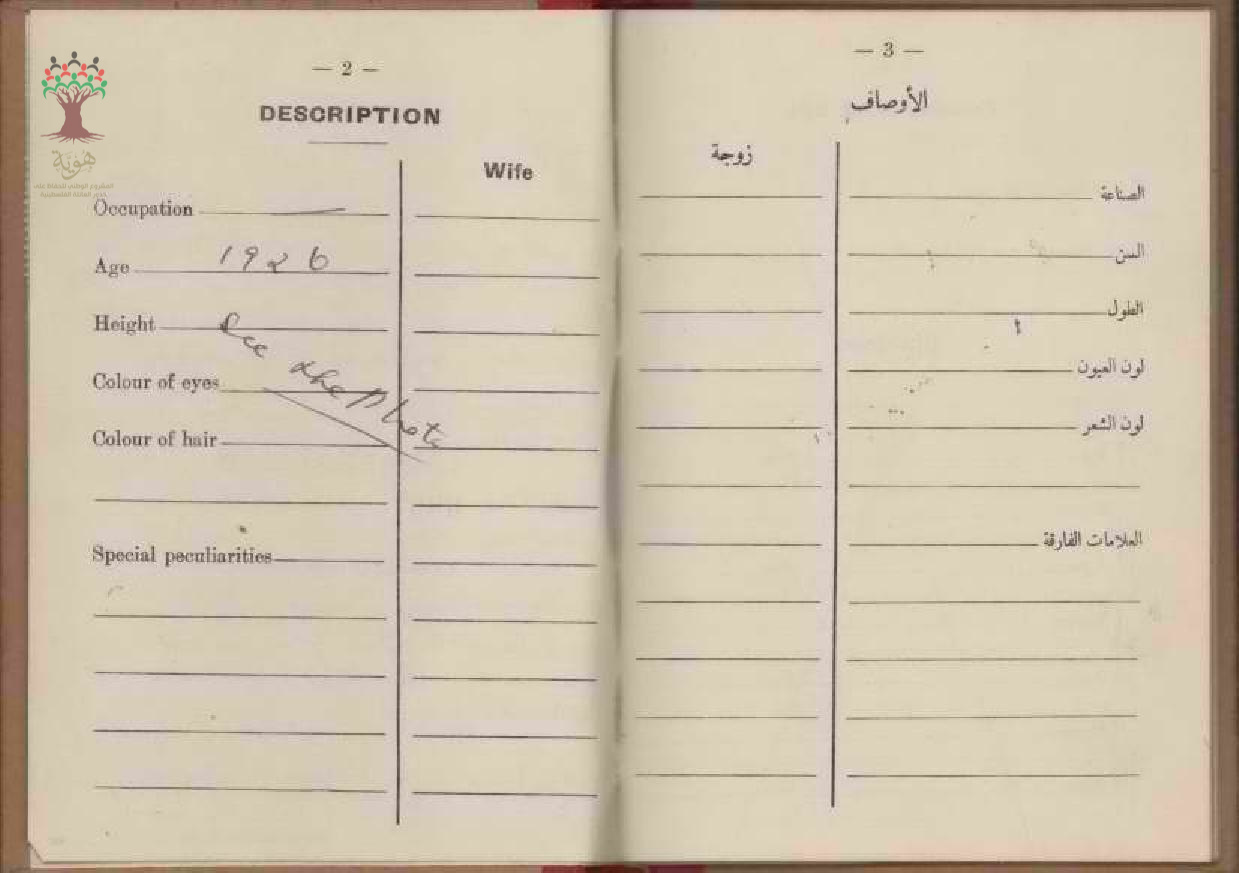 هوية
المشروع الوطني للحفاظ على
جذور العائلة الفلسطينية
— 2 —
DESCRIPTION
Wife
Occupation —
Age 1926
Height See the Photo
Colour of eyes
Colour of hair
Special peculiarities
— 3 —
الأوصاف
زوجة
الصناعة
السن
الطول
لون العيون
لون الشعر
العلامات الفارقة